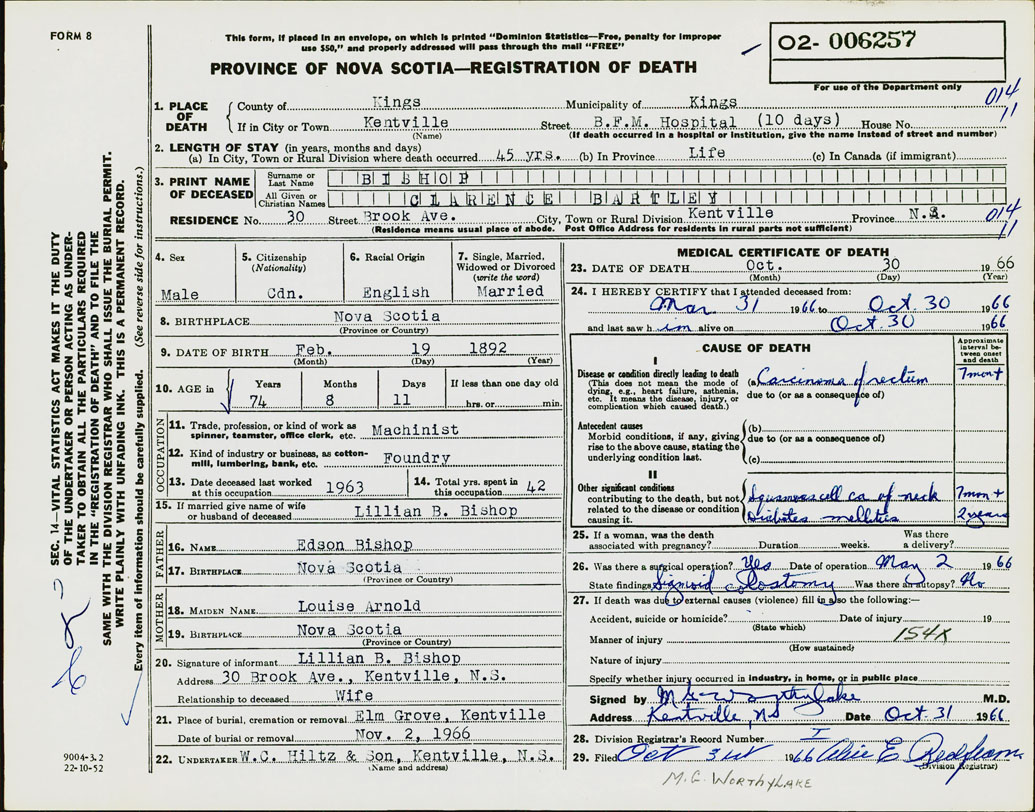 FORM 8
This form, if placed in an envelope, on which is printed “Dominion Statistics—Free, penalty for improper
use $50,” and properly addressed will pass through the mail “FREE”
02- 006257
For use of the Department only
PROVINCE OF NOVA SCOTIA—REGISTRATION OF DEATH
014
11
1. PLACE OF DEATH
County of Kings Municipality of Kings
If in City or Town Kentville Street B.F.M. Hospital (10 days) House No.
(Name) (If death occurred in a hospital or institution, give the name instead of street and number)
2. LENGTH OF STAY (in years, months and days)
(a) In City, Town or Rural Division where death occurred 45 yrs. (b) In Province Life (c) In Canada (if immigrant)
3. PRINT NAME OF DECEASED
Surname or Last Name BISHOP
All Given or Christian Names CLARENCE BARTLEY
RESIDENCE No. 30 Street Brook Ave. City, Town or Rural Division Kentville Province N.S.
(Residence means usual place of abode. Post Office Address for residents in rural parts not sufficient)
014
11
4. Sex
Male
5. Citizenship
(Nationality)
Cdn.
6. Racial Origin
English
7. Single, Married,
Widowed or Divorced
(write the word)
Married
8. BIRTHPLACE Nova Scotia
(Province or Country)
9. DATE OF BIRTH Feb. 19 1892
(Month) (Day) (Year)
10. AGE in
Years Months Days If less than one day old
74 8 11 hrs. or min.
OCCUPATION
11. Trade, profession, or kind of work as
spinner, teamster, office clerk, etc. Machinist
12. Kind of industry or business, as cotton-
mill, lumbering, bank, etc. Foundry
13. Date deceased last worked
at this occupation 1963
14. Total yrs. spent in
this occupation 42
15. If married give name of wife
or husband of deceased Lillian B. Bishop
FATHER
16. NAME Edson Bishop
17. BIRTHPLACE Nova Scotia
(Province or Country)
MOTHER
18. MAIDEN NAME Louise Arnold
19. BIRTHPLACE Nova Scotia
(Province or Country)
20. Signature of informant Lillian B. Bishop
Address 30 Brook Ave., Kentville, N.S.
Relationship to deceased Wife
21. Place of burial, cremation or removal Elm Grove, Kentville
Date of burial or removal Nov. 2, 1966
22. UNDERTAKER W.C. Hiltz & Son, Kentville, N.S.
(Name and address)
MEDICAL CERTIFICATE OF DEATH
23. DATE OF DEATH Oct. 30 1966
(Month) (Day) (Year)
24. I HEREBY CERTIFY that I attended deceased from:
Mar 31 1966 to Oct 30 1966
and last saw him alive on Oct. 30 1966
CAUSE OF DEATH
Approximate
interval be-
tween onset
and death
I
Disease or condition directly leading to death
(This does not mean the mode of
dying, e.g., heart failure, asthenia,
etc. It means the disease, injury, or
complication which caused death.)
(a) Carcinoma of rectum 7 mon +
due to (or as a consequence of)
Antecedent causes
Morbid conditions, if any, giving
rise to the above cause, stating the
underlying condition last.
(b)
due to (or as a consequence of)
(c)
II
Other significant conditions
contributing to the death, but not
related to the disease or condition
causing it.
Squamous cell ca of neck 7 mon +
Diabetes mellitus 2 years
25. If a woman, was the death
associated with pregnancy? Duration weeks. Was there
a delivery?
26. Was there a surgical operation? Yes Date of operation May 2 1966
State findings Sigmoid colostomy Was there an autopsy? No
27. If death was due to external causes (violence) fill in also the following:—
Accident, suicide or homicide? Date of injury 19
(State which)
Manner of injury 154X
(How sustained)
Nature of injury
Specify whether injury occurred in industry, in home, or in public place
Signed by M G Worthylake M.D.
Address Kentville, NS Date Oct. 31 1966
28. Division Registrar's Record Number I
29. Filed Oct 31st 1966
(Division Registrar)
M.G. WORTHYLAKE
SEC. 14—VITAL STATISTICS ACT MAKES IT THE DUTY
OF THE UNDERTAKER OR PERSON ACTING AS UNDER-
TAKER TO OBTAIN ALL THE PARTICULARS REQUIRED
IN THE “REGISTRATION OF DEATH” AND TO FILE THE
SAME WITH THE DIVISION REGISTRAR WHO SHALL ISSUE THE BURIAL PERMIT.
WRITE PLAINLY WITH UNFADING INK. THIS IS A PERMANENT RECORD.
Every item of information should be carefully supplied. (See reverse side for instructions.)
9004-3.2
22-10-52